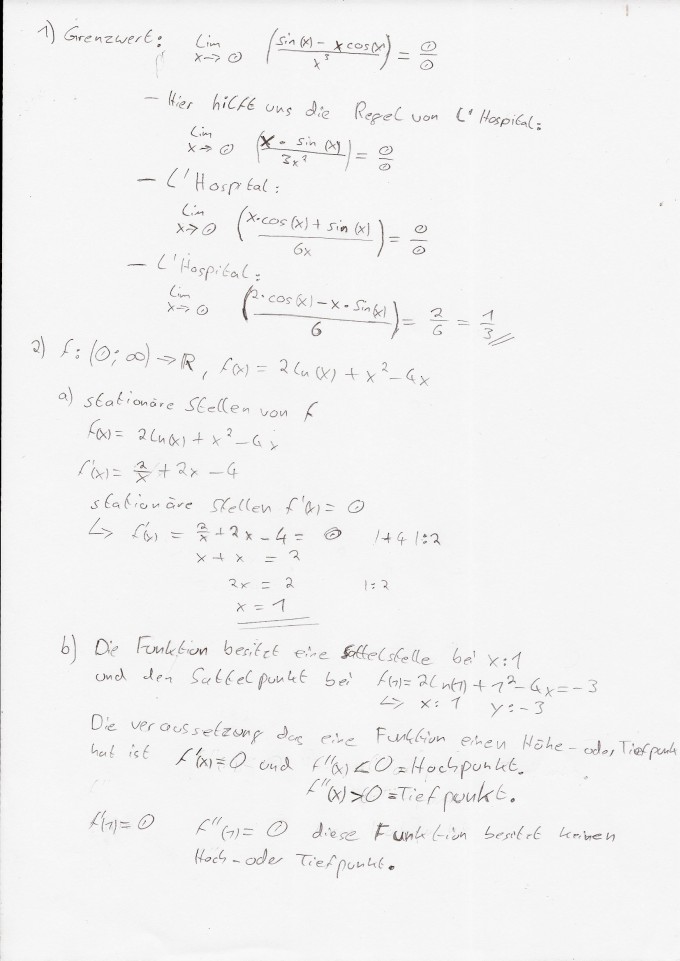 1) Grenzwert: Lim x→0 (sin(x) - x cos(x) / x³) = 0/0
- Hier hilft uns die Regel von L'Hospital:
Lim x→0 (x • sin(x) / 3x²) = 0/0
- L'Hospital:
Lim x→0 (x·cos(x) + sin(x) / 6x) = 0/0
- L'Hospital:
Lim x→0 (2·cos(x) - x·sin(x) / 6) = 2/6 = 1/3
2) f: (0; ∞) → ℝ, f(x) = 2ln(x) + x² - 4x
a) stationäre Stellen von f
f(x) = 2ln(x) + x² - 4x
f'(x) = 2/x + 2x - 4
stationäre Stellen f'(x) = 0
↳ f'(x) = 2/x + 2x - 4 = 0 |+4 |:2
x + x = 2
2x = 2 |:2
x = 1
b) Die Funktion besitzt eine Sattelstelle bei x:1
und den Sattelpunkt bei f(1) = 2ln(1) + 1² - 4x = -3
↳ x: 1 y: -3
Die veraussetzung das eine Funktion einen Höhe- oder Tiefpunk
hat ist f'(x) = 0 und f''(x) < 0 = Hochpunkt.
f''(x) > 0 = Tiefpunkt.
f'(1) = 0 f''(1) = 0 diese Funktion besitzt keinen
Hoch- oder Tiefpunkt.